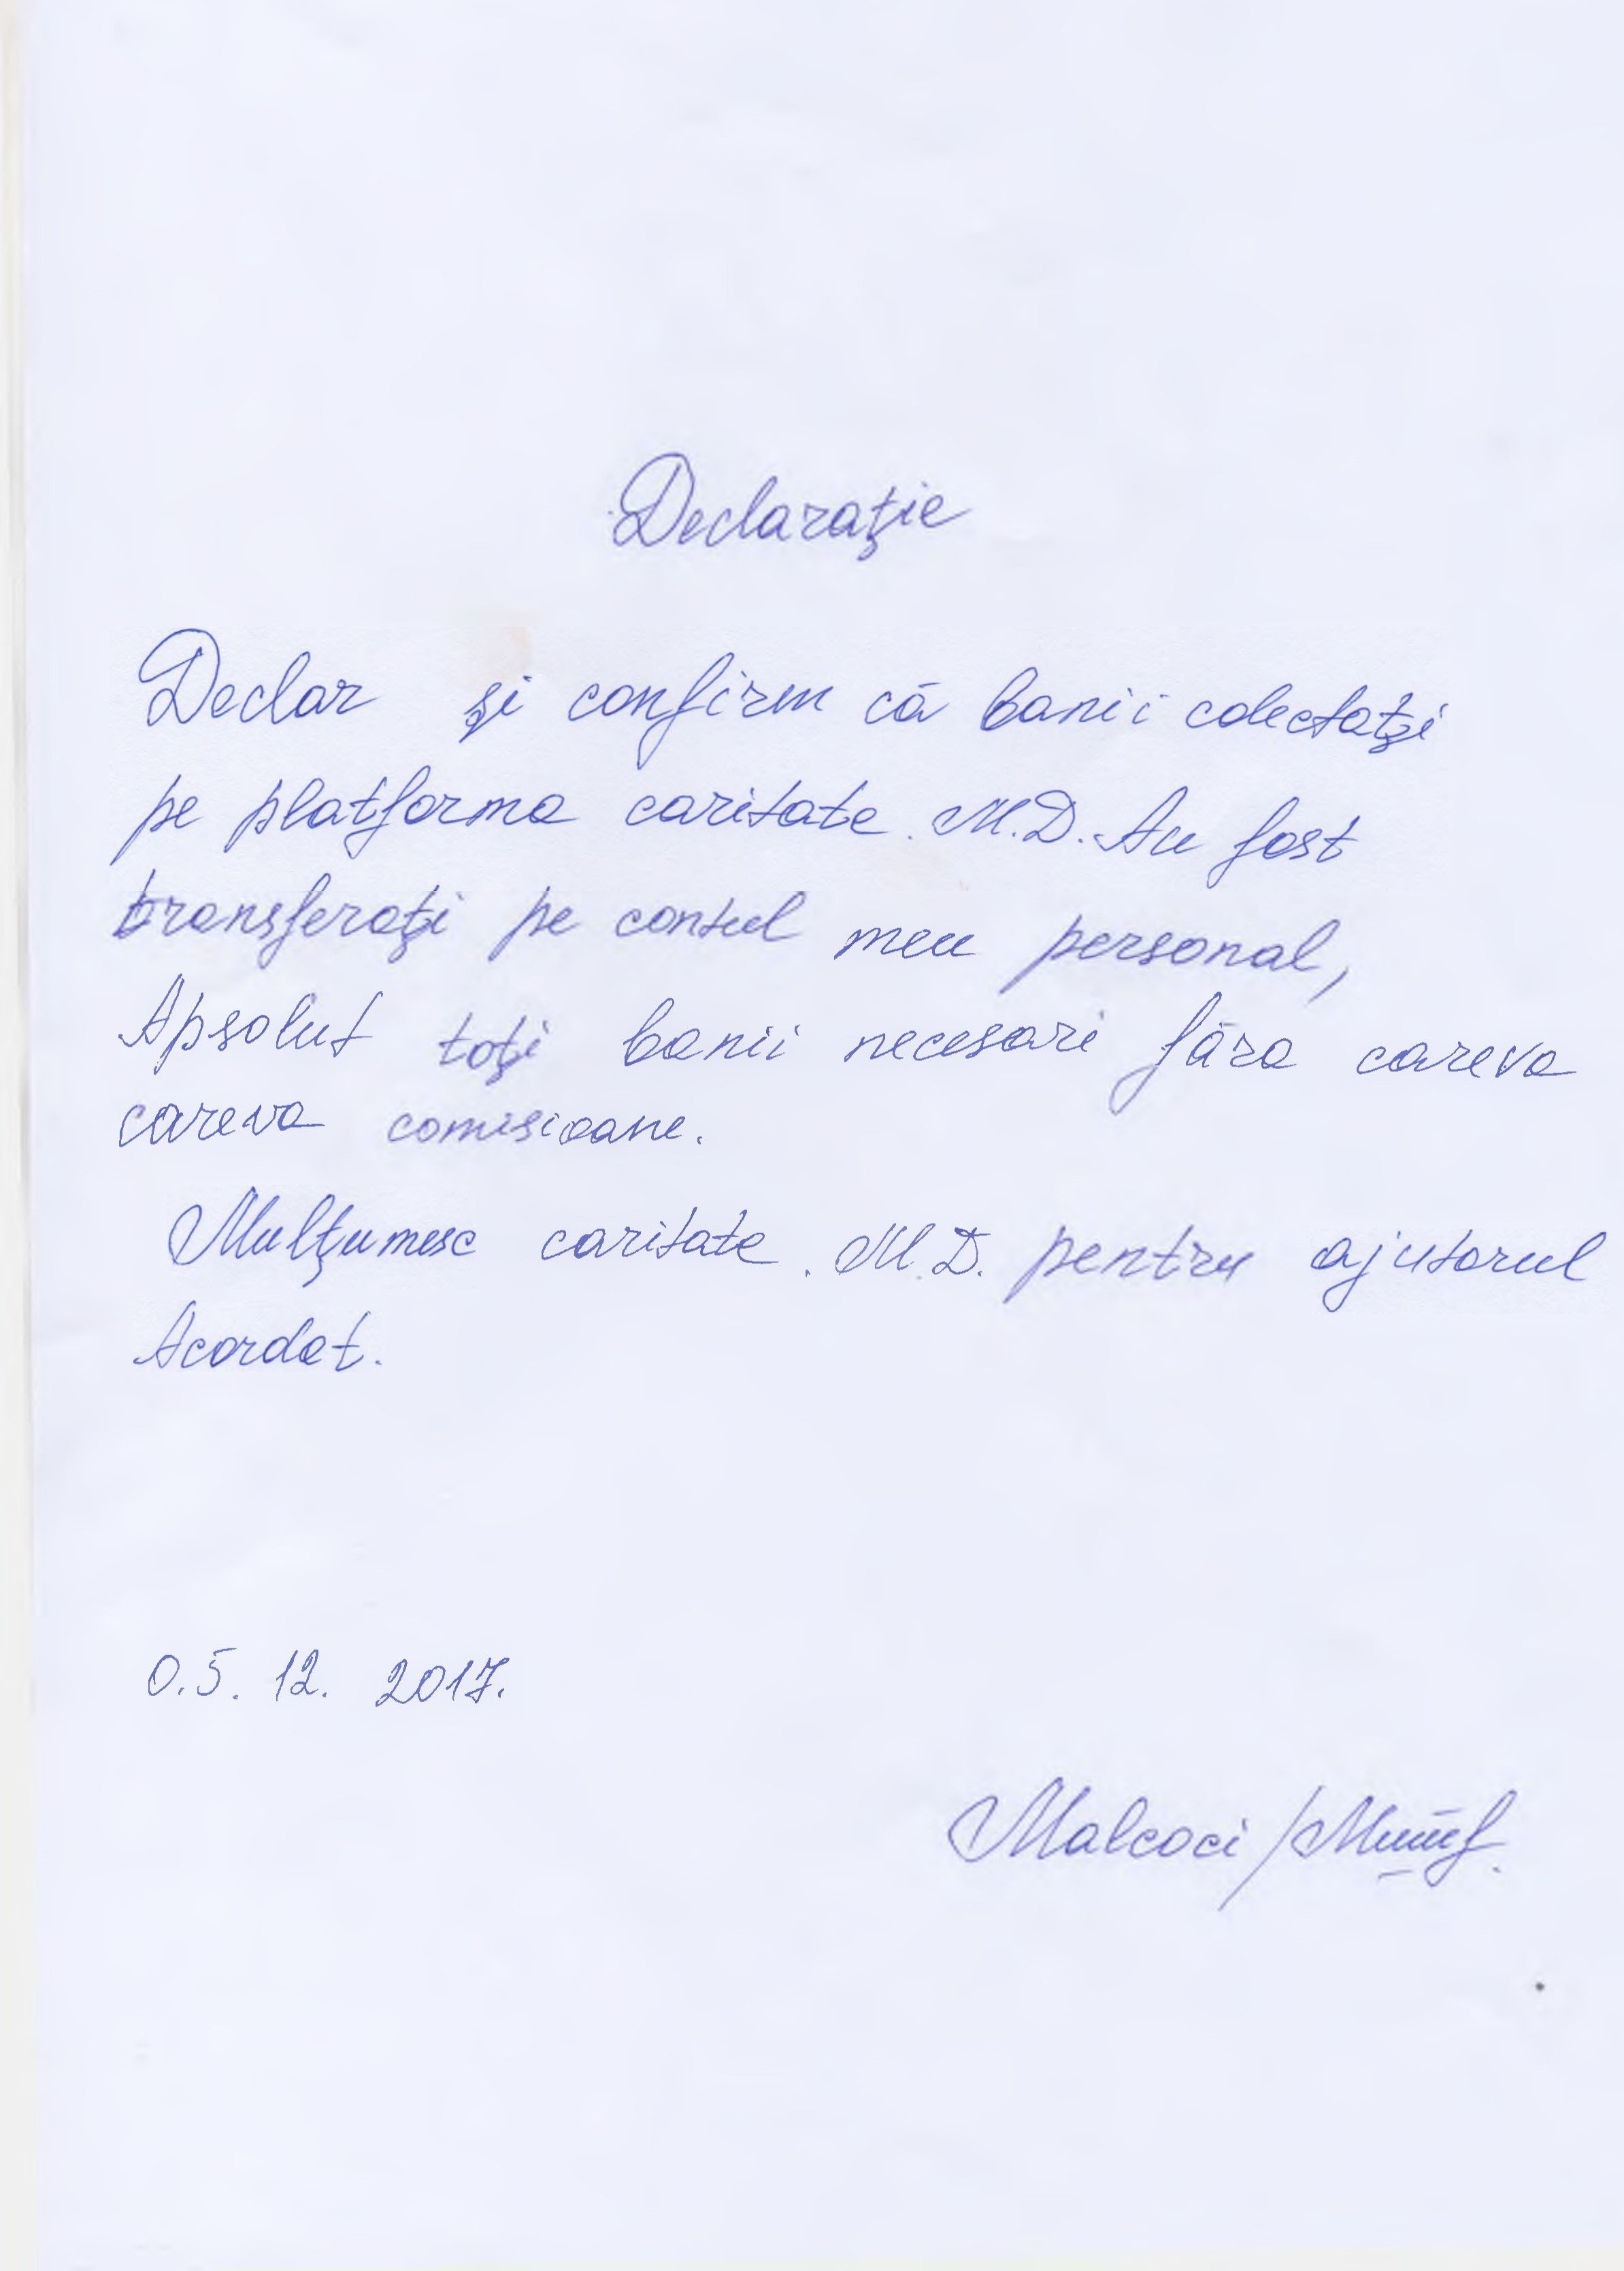 Declaraţie
Declar şi confirm că banii colectaţi
pe platforma caritate. M.D. Au fost
transferaţi pe contul meu personal,
Apsolut toţi banii necesari făra careva
careva comisioane.
Mulţumesc caritate. M.D. pentru ajutorul
Acordat.
0.5. 12. 2017.
Malcoci /